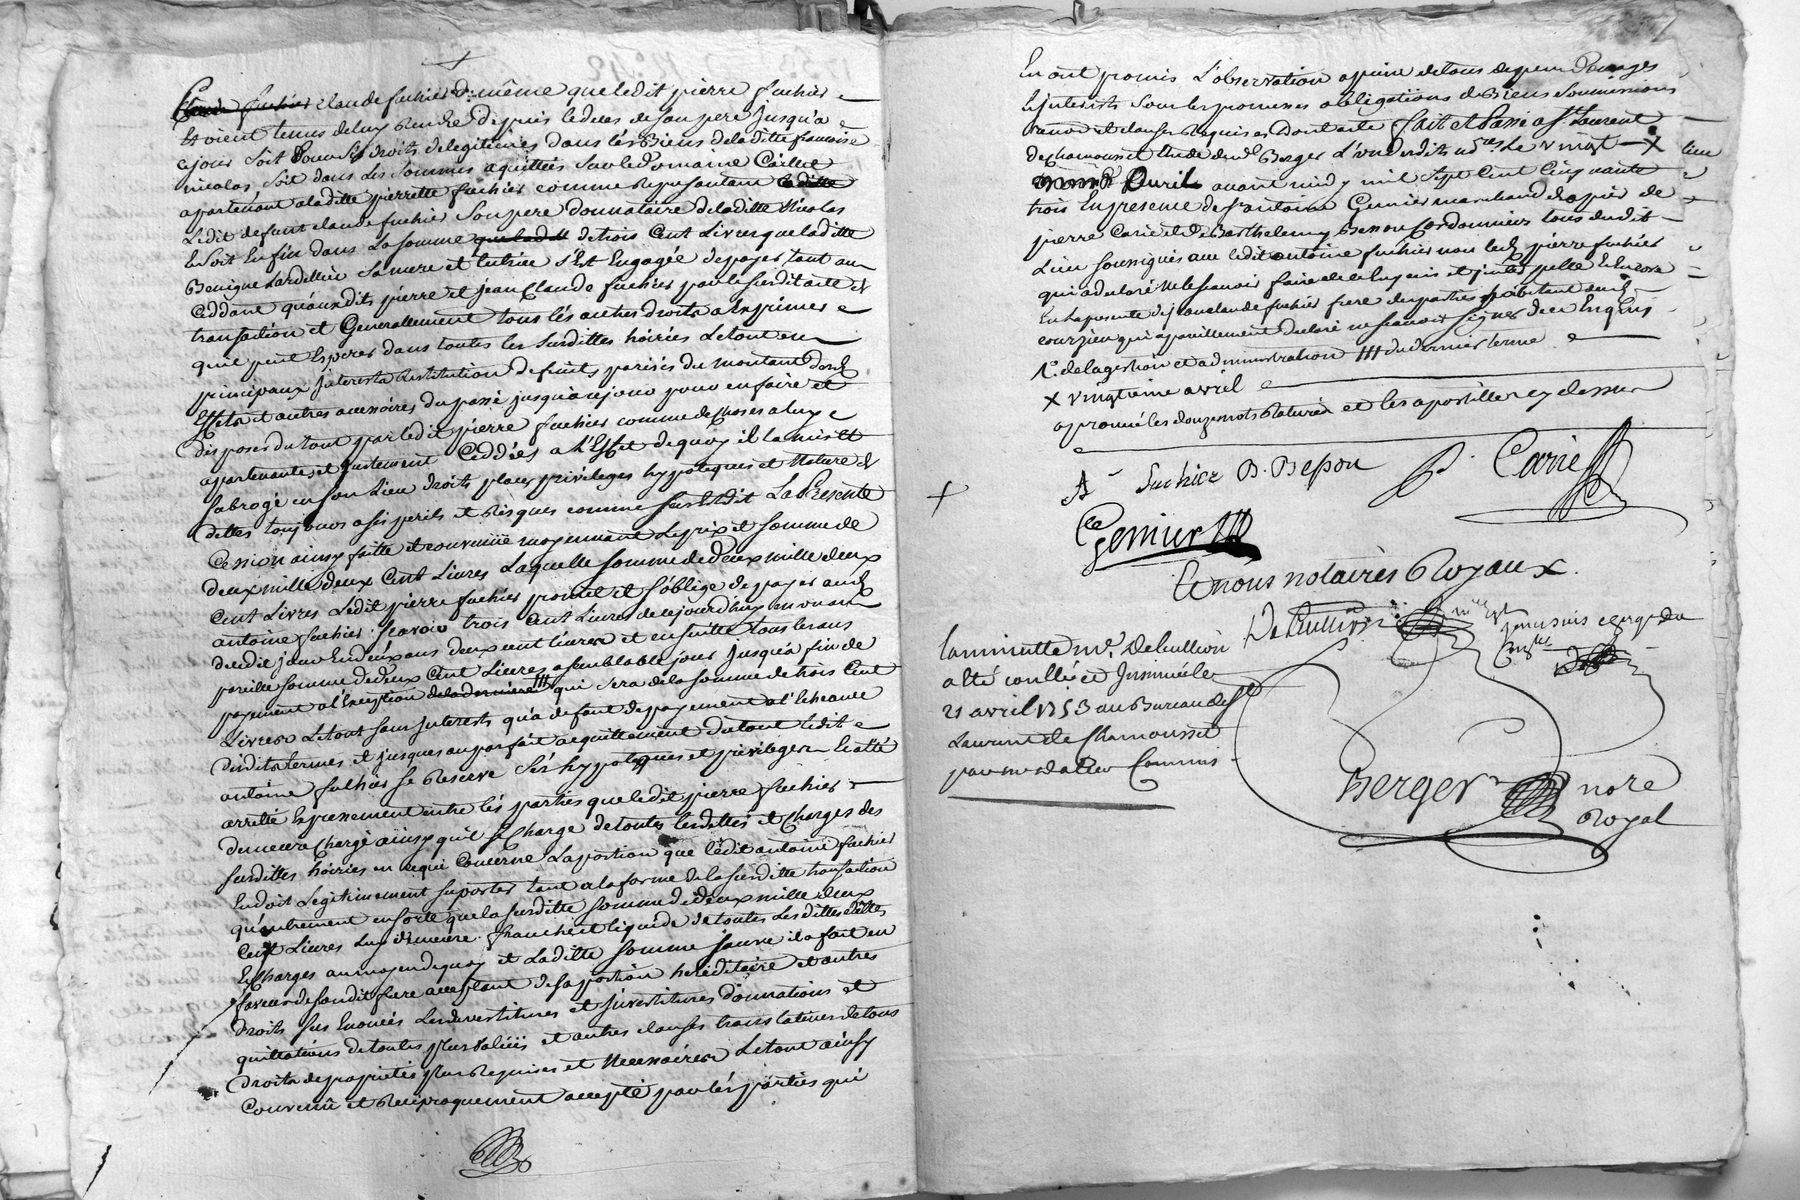 Claude fuchier claude fuchier De même que ledit pierre fuchier
Etoient tenus de luy Rendre depuis le deces de son pere Jusqu'a
ce jour Soit Pour Ses droits de legitimes dans lés Biens de la ditte francoise
nicolas Soit dans les Sommes aquittées Sur le Domaine Caillet
apartenant a la ditte pierrette fuchier comme Representant la ditte
Ledit defunt claude fuchier Son pere Donnataire de la ditte Nicolas
En Soit Enfin dans La Somme que lad de trois Cent Livres que la ditte
Benigne Sa mere et tutrice s'Est Engagée de payer tant au
Ceddant qu'ausdits pierre et jean Claude fuchier par le Susdit acte de
transaction et Generallement tous lés autres droits a Exprimer
qu'il peut Esperer dans toutes les Susdittes hoiries Le tout en
principaux Interests Restitution de fruits parisis du montant
Effets et autres accessoires du passé jusqu'a ce jour pour en faire et
disposer du tout par ledit pierre fuchier comme de choses a luy
apartenantes et justement Ceddées a l'Effet de quoy il la mis et
Subrogé en Son Lieu droits place privileges hypoteques et Nature de
dettes toujours a Ses perils et Risques comme Sus Est dit La Presente
Cession ainsy faitte et convenue moyennant Le prix et Somme de
deux mille deux Cent Livres Laquelle Somme de Deux mille deux
Cent Livres Ledit pierre fuchier promet et S'oblige de payer aud
antoine fuchier Scavoir trois Cent Livres de cejourd'huy en un an
dudit jour En deux ans deux cent livres et ensuitte tous les ans
pareille Somme de Deux Cent Livres a semblable jour Jusqu'a fin de
payement a l'Exception de la derniere qui Sera de la Somme de trois Cent
Livres Le tout Sans Interests qu'a defaut de payement a l'Echeance
desdits termes et jusques au parfait acquittement du tout ledit
antoine fuchier Se Reserve Sés hypoteques et privileges Et a Eté
arretté Expressement entre lés parties que ledit pierre fuchier
demeure Chargé ainsy qu'il Se Charge de toutes les dettes et Charges des
Susdittes hoiries en ce qui Concerne La portion que ledit antoine fuchier
En doit Legitimement Suporter tant a la forme de la Susditte transaction
qu'autrement en Sorte que la Susditte Somme de deux mille deux
Cent Livres Luy demeure franche et liquide de toutes Lesdittes dettes
Et Charges au moyen de quoy et La ditte Somme Sauve il a fait en
faveur de Sondit frere acceptant de Sa portion hereditaire et autres
Droits Sus Enoncés Les devestitures et Investitures Donnations et
quittations de toutes plus values et autres clauses translatives de tous
Droits de proprieté plus Requises et Necessaires Le tout ainsy
Convenu et Reciproquement accepté par lés parties qui
En ont promis L'observation a peine de tous depens Domages
Et Interests Sous les promesses obligations de Biens Soumissions
renon et clauses Requises dont acte fait et Passé a St Laurent
de chamousset Etude dud Berger L'un desdits nres Le vingt X
Avril avant midy mil Sept Cent Cinquante
trois En presence de Sr antoine Genier marchand drapier de
pierre Carié et de Barthelemy Besson Cordonnier tous dudit
Lieu Soussignés avec ledit antoine fuchier non led pierre fuchier
qui a declaré ne le Scavoir faire de ce Enquis et Encore
En La presence de jean claude fuchier frere des parties habitant aud
courzieu qui a pareillement declaré ne Scavoir Signer de ce Enquis
de la gestion et administration du dernier terme
X vingtieme avril
aprouvé les douze mots Raturés et les apostilles cy dessus
A Fuchier B. Besson P. Carié
Genier
Et nous notaires Royaux
Debullion
La minutte Me Debullion
a été conllée et Insinuée le
21 avril 1753 au Bureau de St
Laurent de Chamousset
par Commis
Berger nore
Royal